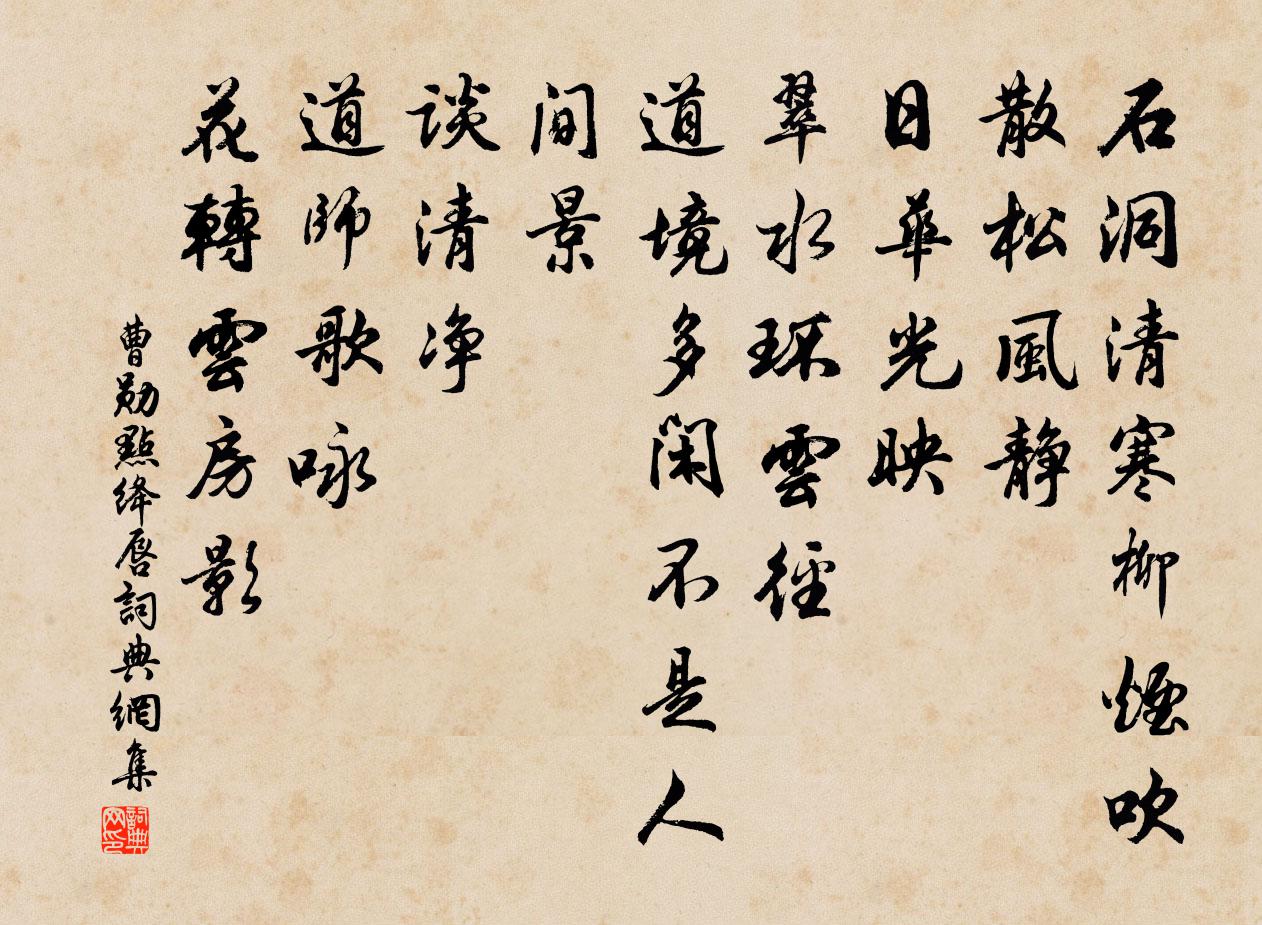 石洞清寒柳煙吹
散松風静
日華光映
翠水环雲徑
道境多闲不是人
间景
談清净
道師歌咏
花轉雲房影
曹勛點绛唇詞典網集
詞典网印